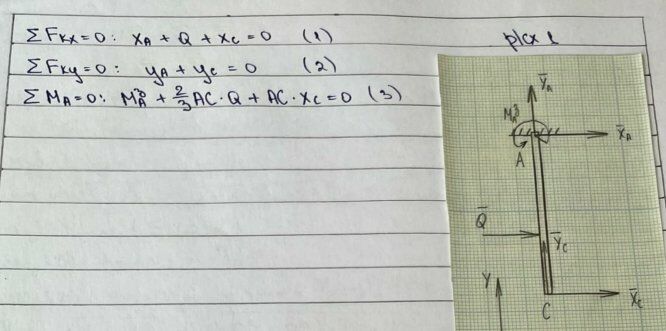 ΣFкx=0: xA + Q + xC = 0 (1)
ΣFкy=0: yA + yC = 0 (2)
ΣMA=0: MAᶾ + 2/3 AC · Q + AC · xC = 0 (3)
рис 1
ȲA
MAᶾ
X̄A
A
Q̄
ȲC
Y
X̄C
C